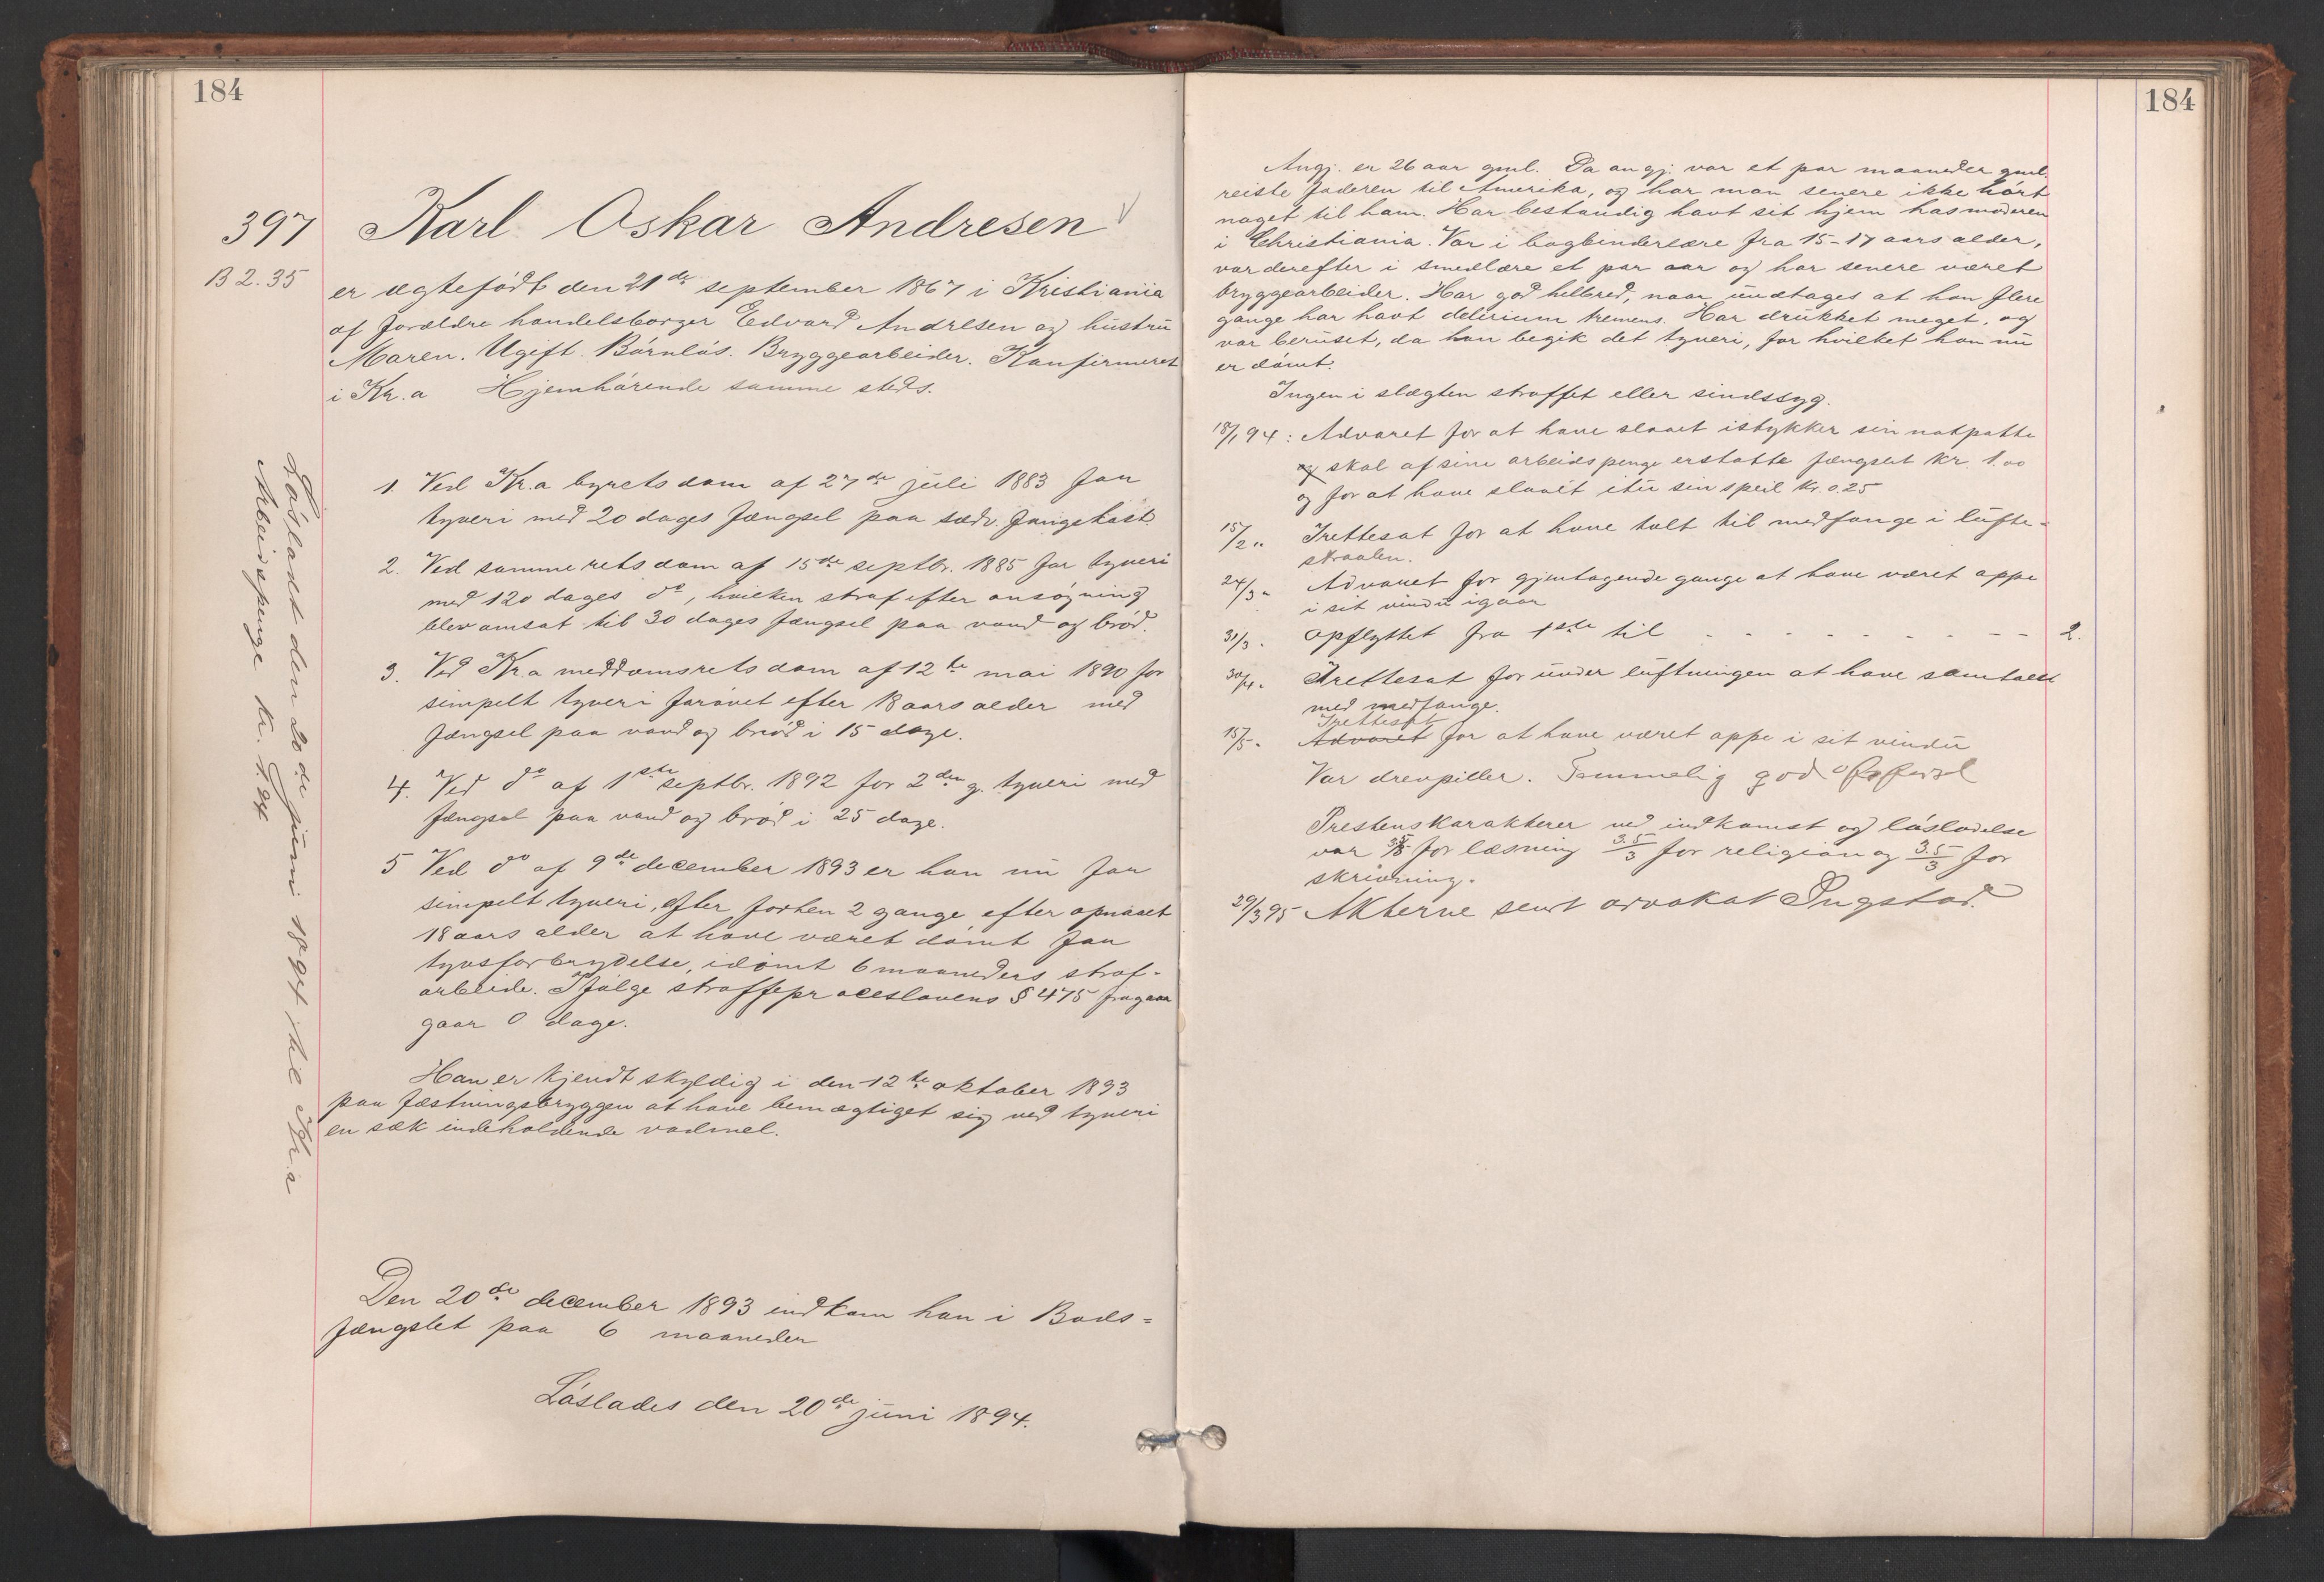 184
397 Karl Oskar Andresen
B 2.35
er ægtefödt den 21de september 1867 i Kristiania
af forældre handelsborger Edvard Andresen og hustru
Maren. Ugift. Börnlös. Bryggearbeider. Konfirmeret
i Kr.a Hjemhörende samme steds.
1. Ved Kr.a byrets dom af 27de juli 1883 for
tyveri med 20 dages fængsel paa sædv. fangekost.
2. Ved samme rets dom af 15de septbr. 1885 for tyveri
med 120 dages do, hvilken straf efter ansögning
blev omsat til 30 dages fængsel paa vand og bröd.
3. Ved Kr.a meddomsrets dom af 12te mai 1890 for
simpelt tyveri forövet efter 18 aars alder med
fængsel paa vand og bröd i 15 dage.
4. Ved do af 1ste septbr. 1892 for 2den g. tyveri med
fængsel paa vand og bröd i 25 dage.
5 Ved do af 9de december 1893 er han nu for
simpelt tyveri, efter forhen 2 gange efter opnaaet
18 aars alder at have været dömt for
tyvsforbrydelse, idömt 6 maaneders straf-
arbeide. Ifölge straffeproceslovens § 475 fragaar
gaar 0 dage.
Han er kjendt skyldig i den 12te oktober 1893
paa fæstningsbryggen at have bemægtiget sig ved tyveri
en sæk indeholdende vadmel.
Den 20de december 1893 indkom han i Bods-
fængslet paa 6 maaneder
Löslades den 20de juni 1894.
Lösladt den 20de juni 1894 til Kr.a
Arbeidspenge kr.
184
Angj. er 26 aar gml. Da angj. var et par maaneder gml.
reiste faderen til Amerika, og har man senere ikke hört
noget til ham. Har bestandig havt sit hjem hos moderen
i Christiania. Var i bogbinderlære fra 15-17 aars alder,
var derefter i smedlære et par aar og har senere været
bryggearbeider. Har god helbred, naar undtages at han flere
gange har havt delirium tremens. Har drukket meget, og
var beruset, da han begik det tyveri, for hvilket han nu
er dömt.
Ingen i slægten straffet eller sindssyg.
18/1 94: Advaret for at have slaaet istykker sin natpotte
og skal af sine arbeidspenge erstatte fængslet kr. 1.00
og for at have slaaet itu sin speil kr. 0.25
15/2 " Irettesat for at have talt til medfange i lufte-
straalen.
24/3 " Advaret for gjentagende gange at have været oppe
i sit vindu igaar
31/3 " Opflyttet fra 1ste til - - - - - - - - - - 2.
30/4 " Irettesat for under luftningen at have samtalt
med medfange.
Irettesat
15/5 " Advaret for at have været oppe i sit vindu
Var drevpiller. Temmelig god opførsel
Prestens karakterer ved indkomst og löslodelse
var for læsning 3.5/3 for religion og 3.5/3 for
skrivning.
29/3 95 Akterne sendt advokat Pugstad.